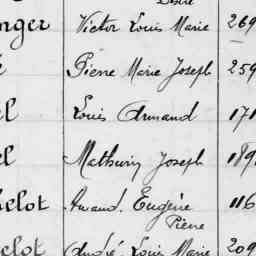 Désiré
nger Victor Louis Marie 269
Pierre Marie Joseph 259
el Louis Armand 171
el Mathurin Joseph 189
helot Amand. Eugène 116
Pierre
elot André Louis Marie 209